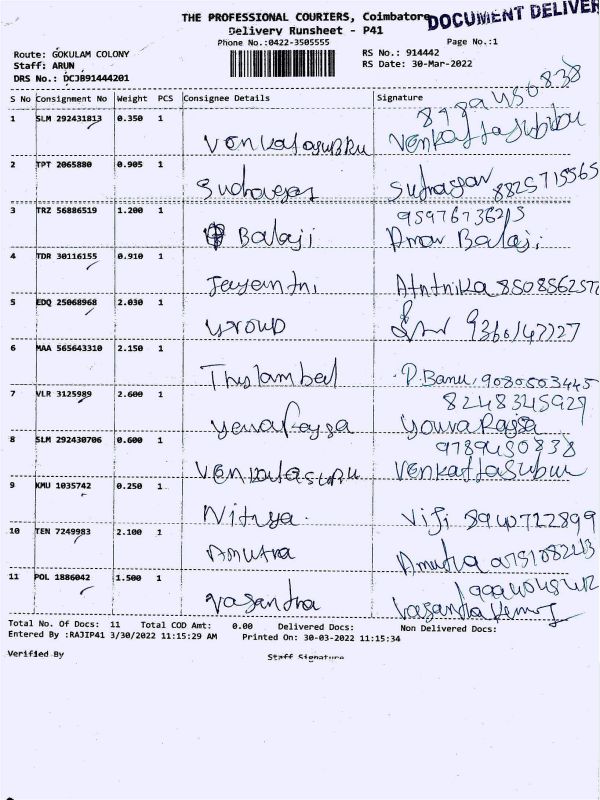 THE PROFESSIONAL COURIERS, Coimbatore
DOCUMENT DELIVER
Delivery Runsheet - P41
Phone No.:0422-3505555
Page No.:1
Route: GOKULAM COLONY
RS No.: 914442
Staff: ARUN
RS Date: 30-Mar-2022
DRS No.: DCJB91444201
S No Consignment No Weight PCS Consignee Details Signature
1 SLM 292431813 0.350 1
Venkatasubru Venkattasubbu
2 TPT 2065880 0.905 1
8825715565
3 TRZ 56886519 1.200 1
Balaji Amar Balaji
4 TDR 30116155 0.910 1
Jayantni 8508562576
5 EDQ 25068968 2.030 1
Group 9360147727
6 MAA 565643310 2.150 1
D.Banu, 9080503445
7 VLR 3125989 2.600 1 8248345929
Yuvarajsa Youvarajsa
8 SLM 292430706 0.600 1 9789450838
Venkatasupu Venkattasubbu
9 KMU 1035742 0.250 1
Nitysa Viji 8940722899
10 TEN 7249983 2.100 1
Amutra Amutha
11 POL 1886042 1.500 1
Vasantha Vasantha
Total No. Of Docs: 11 Total COD Amt: 0.00 Delivered Docs: Non Delivered Docs:
Entered By :RAJIP41 3/30/2022 11:15:29 AM Printed On: 30-03-2022 11:15:34
Verified By Staff Signature